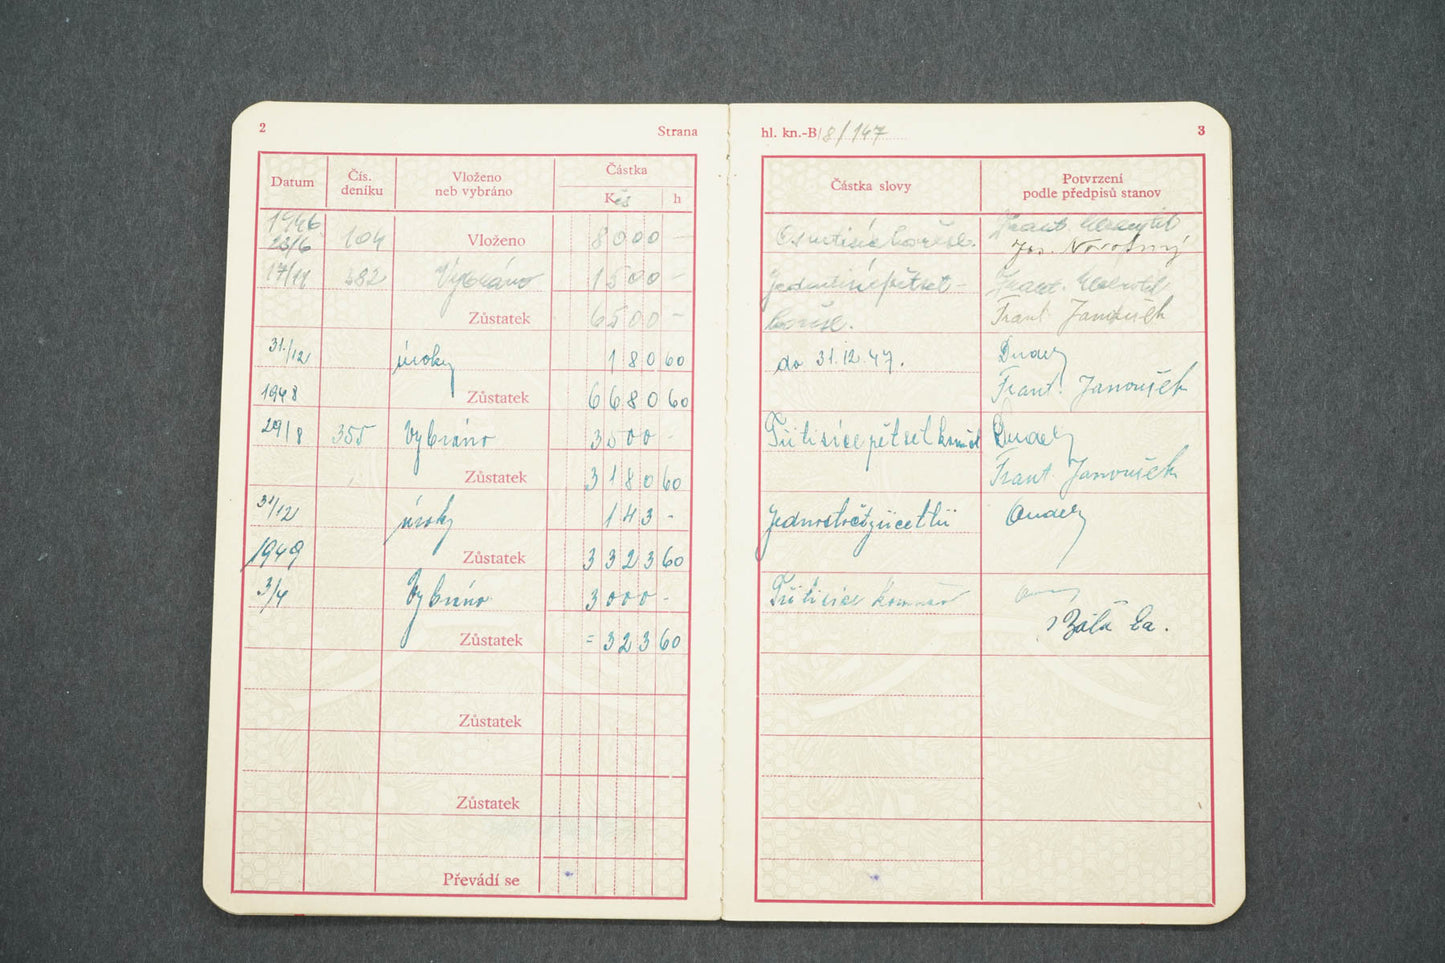 2 Strana
Datum Čís. deníku Vloženo neb vybráno Částka
Kčs h
1946
23/6 104 Vloženo 8000 —
17/11 382 Vybráno 1500 —
Zůstatek 6500 —
31./12 úroky 180 60
1948 Zůstatek 6680 60
29/8 355 Vybráno 3500 -
Zůstatek 3180 60
31/12 úroky 143 -
1949 Zůstatek 3323 60
3/4 Vybráno 3000 -
Zůstatek = 323 60
Zůstatek
Zůstatek
Převádí se
hl. kn.-B/8/147 3
Částka slovy Potvrzení
podle předpisů stanov
Osmtisíc korčs. Frant.
Jos. Novotný
Jedentisícpětset - Frant.
korčs. Frant. Janoušek
do 31.12.47.
Frant. Janoušek
Třitisícepětset
Frant. Janoušek
Jednostočtyřicettři
Třitisíce